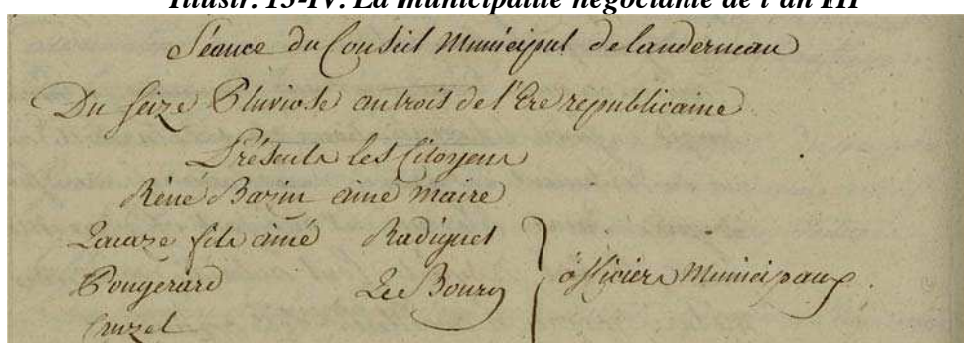 Illustr. 13-IV. La municipalité négociante de l'an III
Séance du Conseil Municipal de landerneau
Du seize Pluviose an trois de l'Ere republicaine
Présents les Citoyens
Réné Bazin ainé maire
fils ainé Radiguet
Pougerard Le Bourg officiers Municipaux.
Cruzel